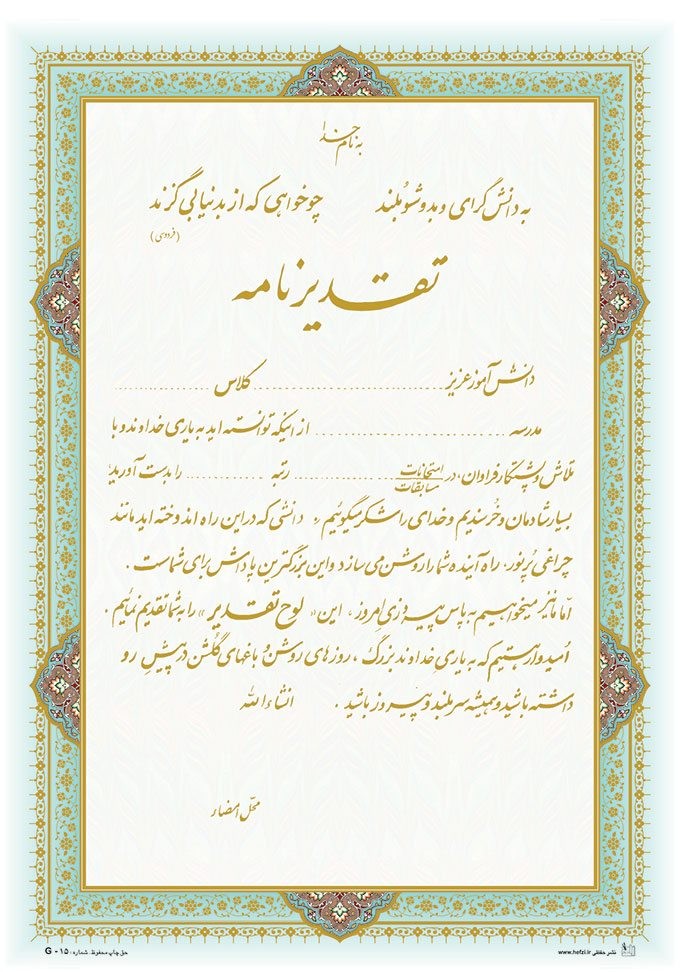 به نام خدا
به دانش گرای و بدو شو بلند چو خواهی که از بد نیابی گزند
(فردوسی)
تقدیرنامه
دانش آموز عزیز .......................... کلاس ..............
مدرسه .......................... از اینکه توانسته اید به یاری خداوند و با
تلاش و پشتکار فراوان، در امتحانات مسابقات .............. رتبه .............. را بدست آورید
بسیار شادمان و خرسندیم و خدای را شکر میگوئیم. دانشی که در این راه اندوخته اید مانند
چراغی پُرنور، راه آینده شما را روشن می سازد و این بزرگترین پاداش برای شماست.
امّا ما نیز میخواهیم به پاس پیروزی امروز، این «لوح تقدیر» را به شما تقدیم نمائیم.
اُمیدوار هستیم که به یاریِ خداوند بزرگ، روزهای روشن و باغهای گُلشن در پیشِ رو
داشته باشید و همیشه سربلند و پیروز باشید. انشاءالله
محلّ امضاء
حق چاپ محفوظ. شماره: ۱۵ - G
نشر حفظی www.hefzi.ir